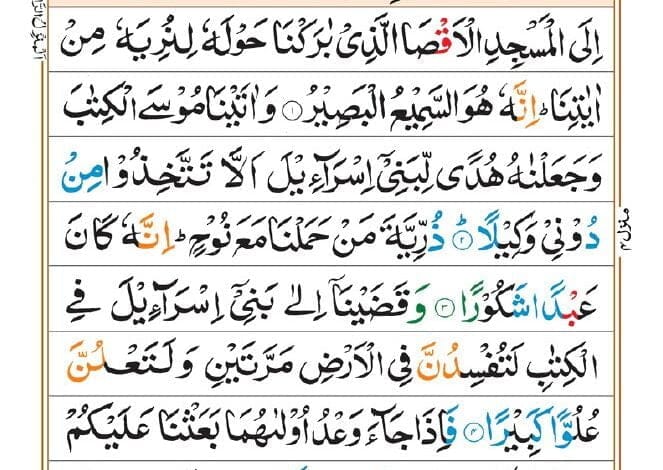 اِلَى الْمَسْجِدِ الْاَقْصَا الَّذِیْ بٰرَكْنَا حَوْلَهٗ لِنُرِیَهٗ مِنْ
اٰیٰتِنَا ؕ اِنَّهٗ هُوَ السَّمِیْعُ الْبَصِیْرُ ۝۱ وَ اٰتَیْنَا مُوْسَى الْكِتٰبَ
وَ جَعَلْنٰهُ هُدًی لِّبَنِیْۤ اِسْرَآءِیْلَ اَلَّا تَتَّخِذُوْا مِنْ
دُوْنِیْ وَكِیْلًا ؕ۝۲ ذُرِّیَّةَ مَنْ حَمَلْنَا مَعَ نُوْحٍ ؕ اِنَّهٗ كَانَ
عَبْدًا شَكُوْرًا ۝۳ وَ قَضَیْنَاۤ اِلٰى بَنِیْۤ اِسْرَآءِیْلَ فِی
الْكِتٰبِ لَتُفْسِدُنَّ فِی الْاَرْضِ مَرَّتَیْنِ وَ لَتَعْلُنَّ
عُلُوًّا كَبِیْرًا ۝۴ فَاِذَا جَآءَ وَعْدُ اُوْلٰىهُمَا بَعَثْنَا عَلَیْكُمْ
منزل ۴